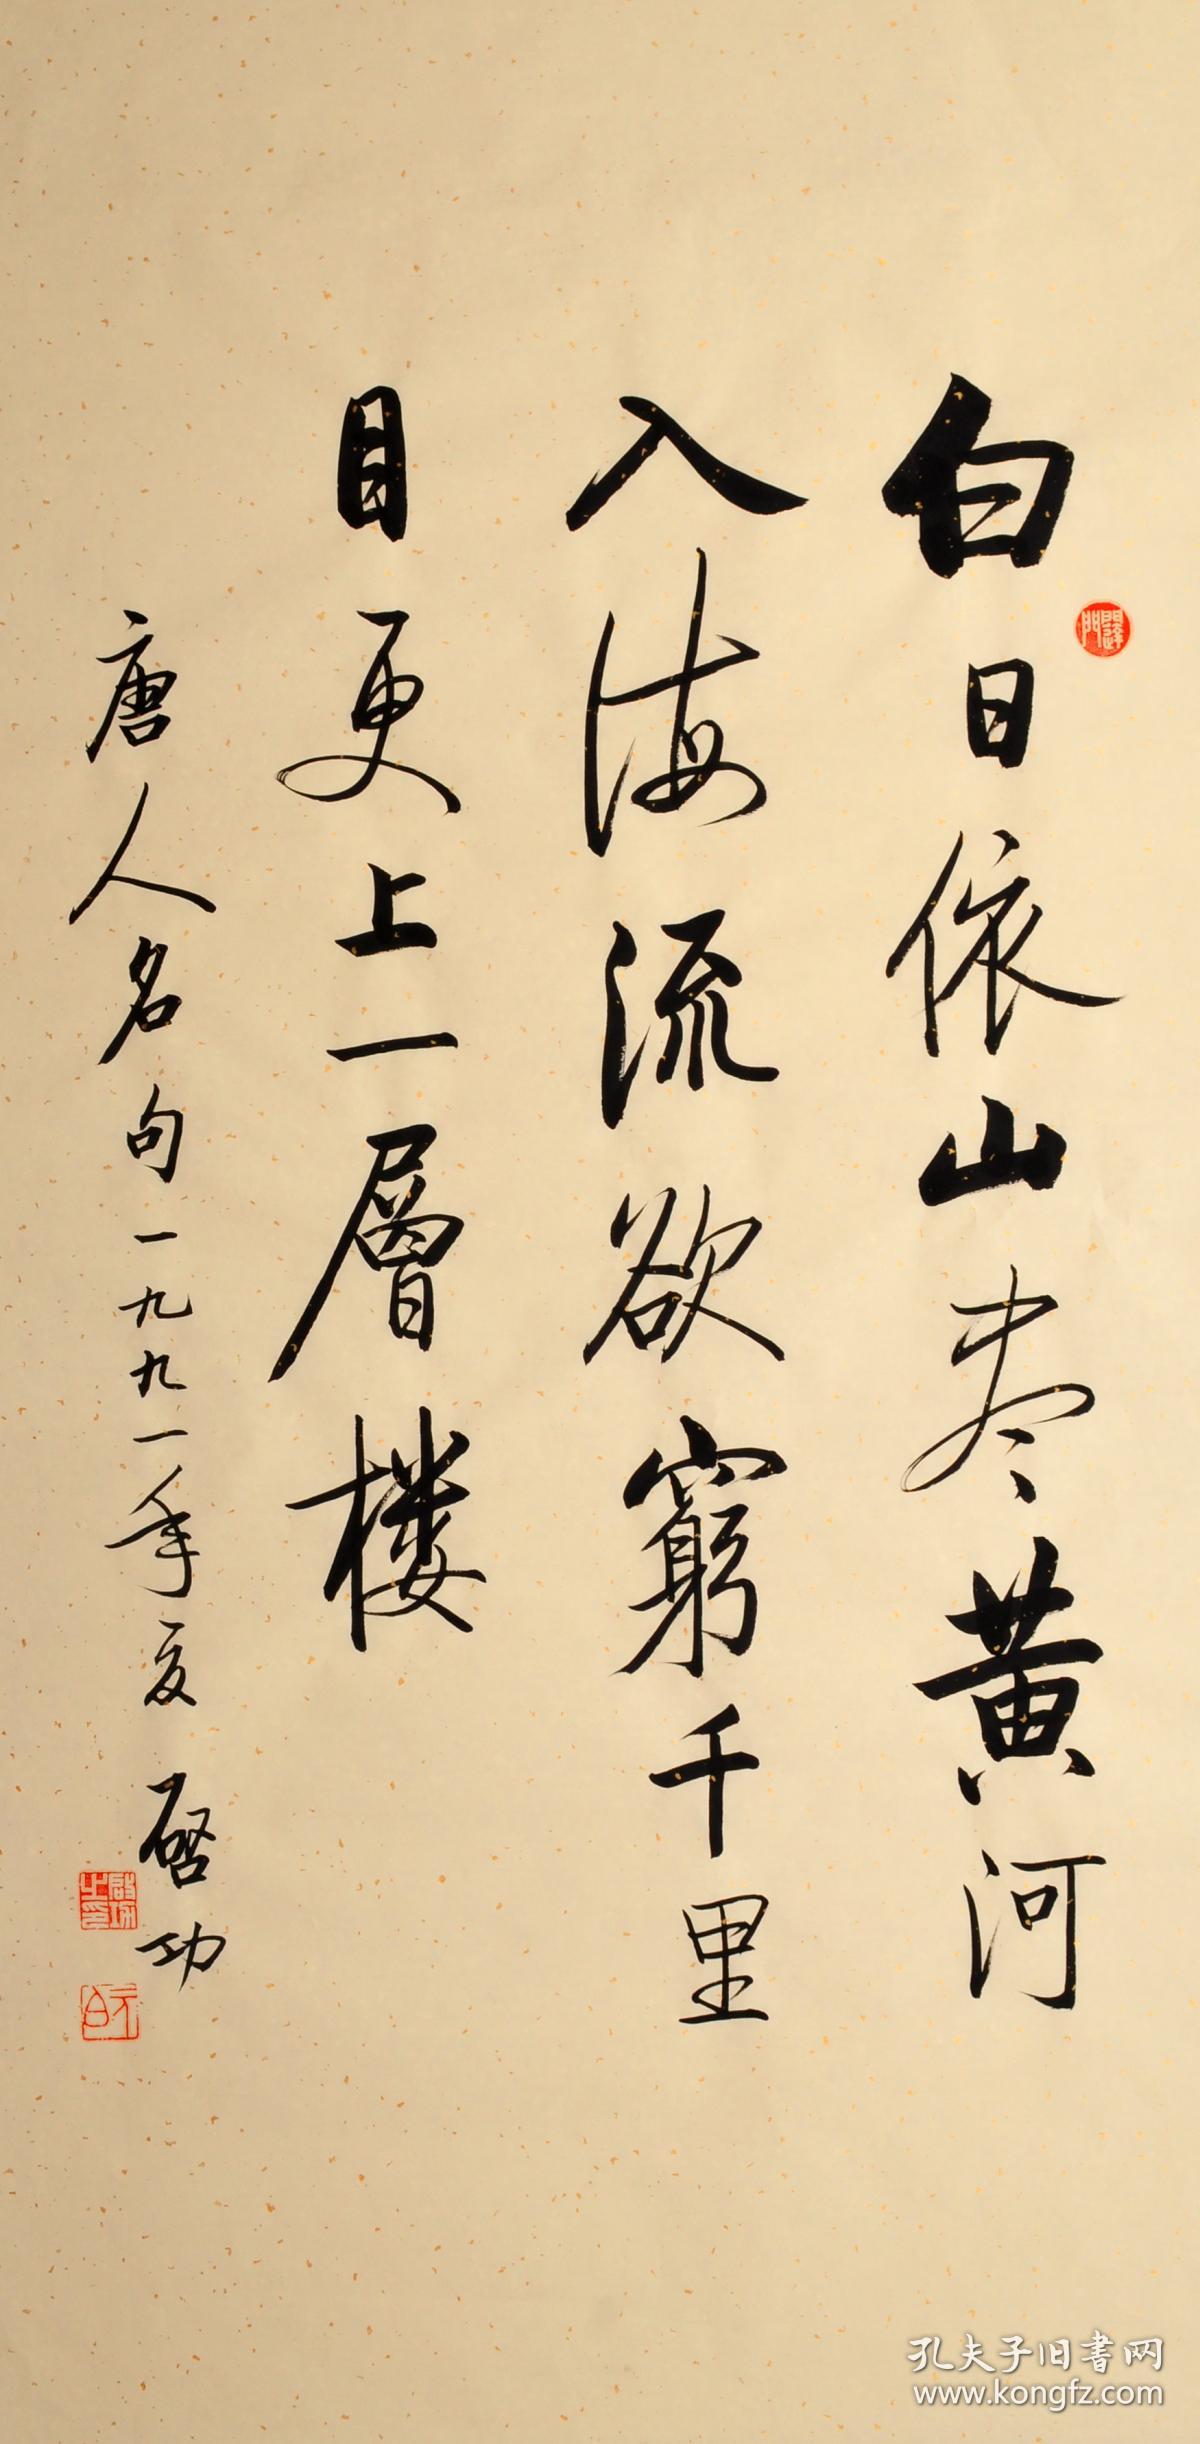 白日依山尽黄河
入海流欲窮千里
目更上一層楼
唐人名句一九九一年夏
啓功
啟功之印
元白
孔夫子旧书网
www.kongfz.com